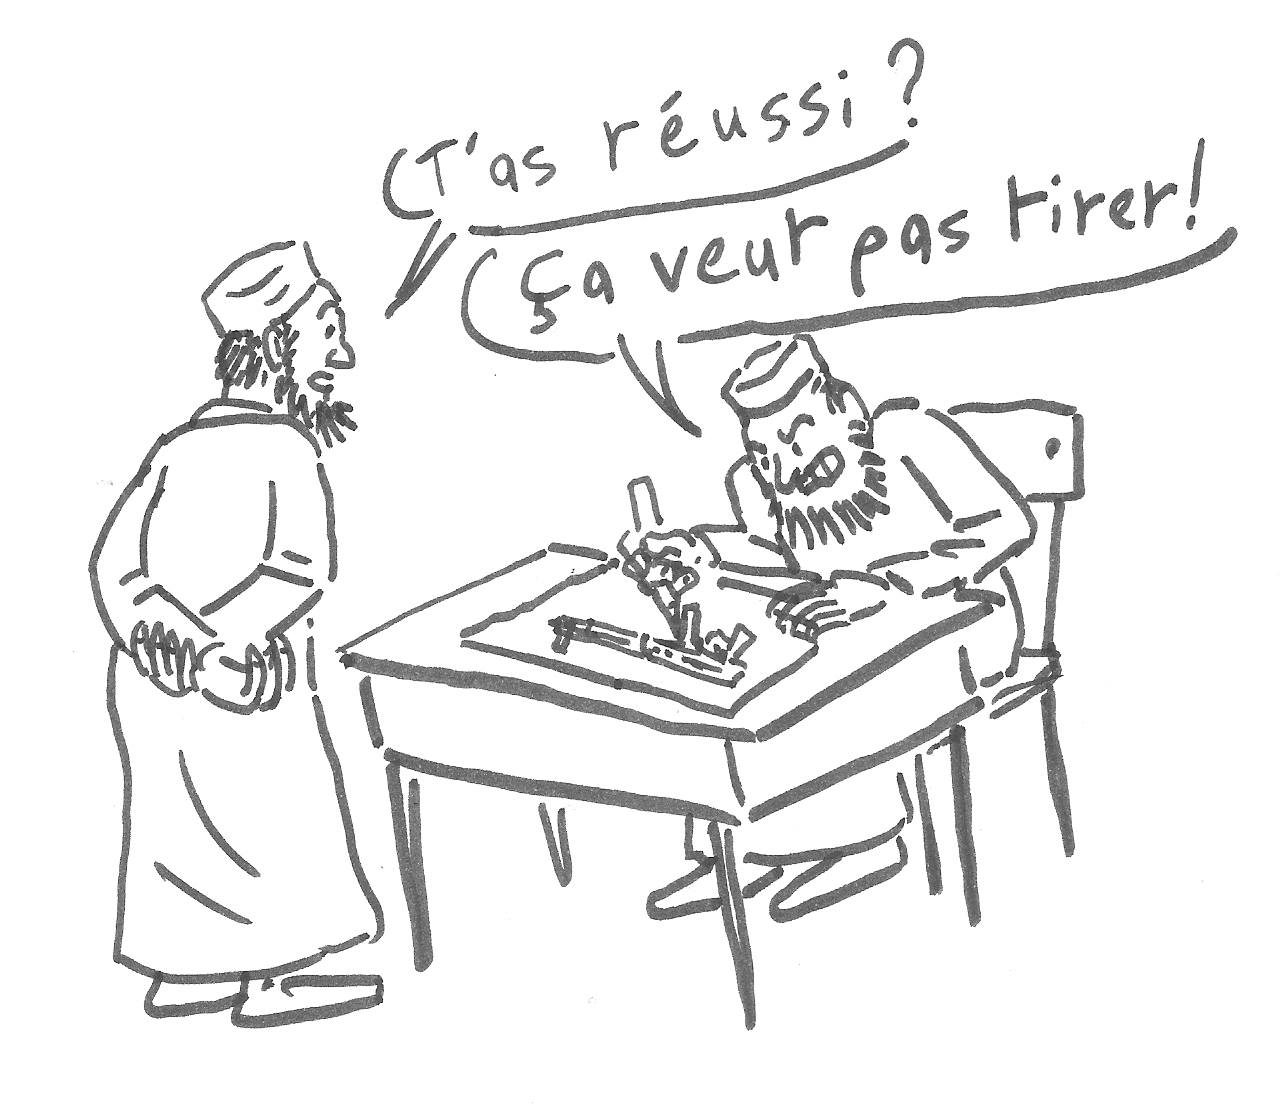 T'as réussi ?
Ça veut pas tirer !